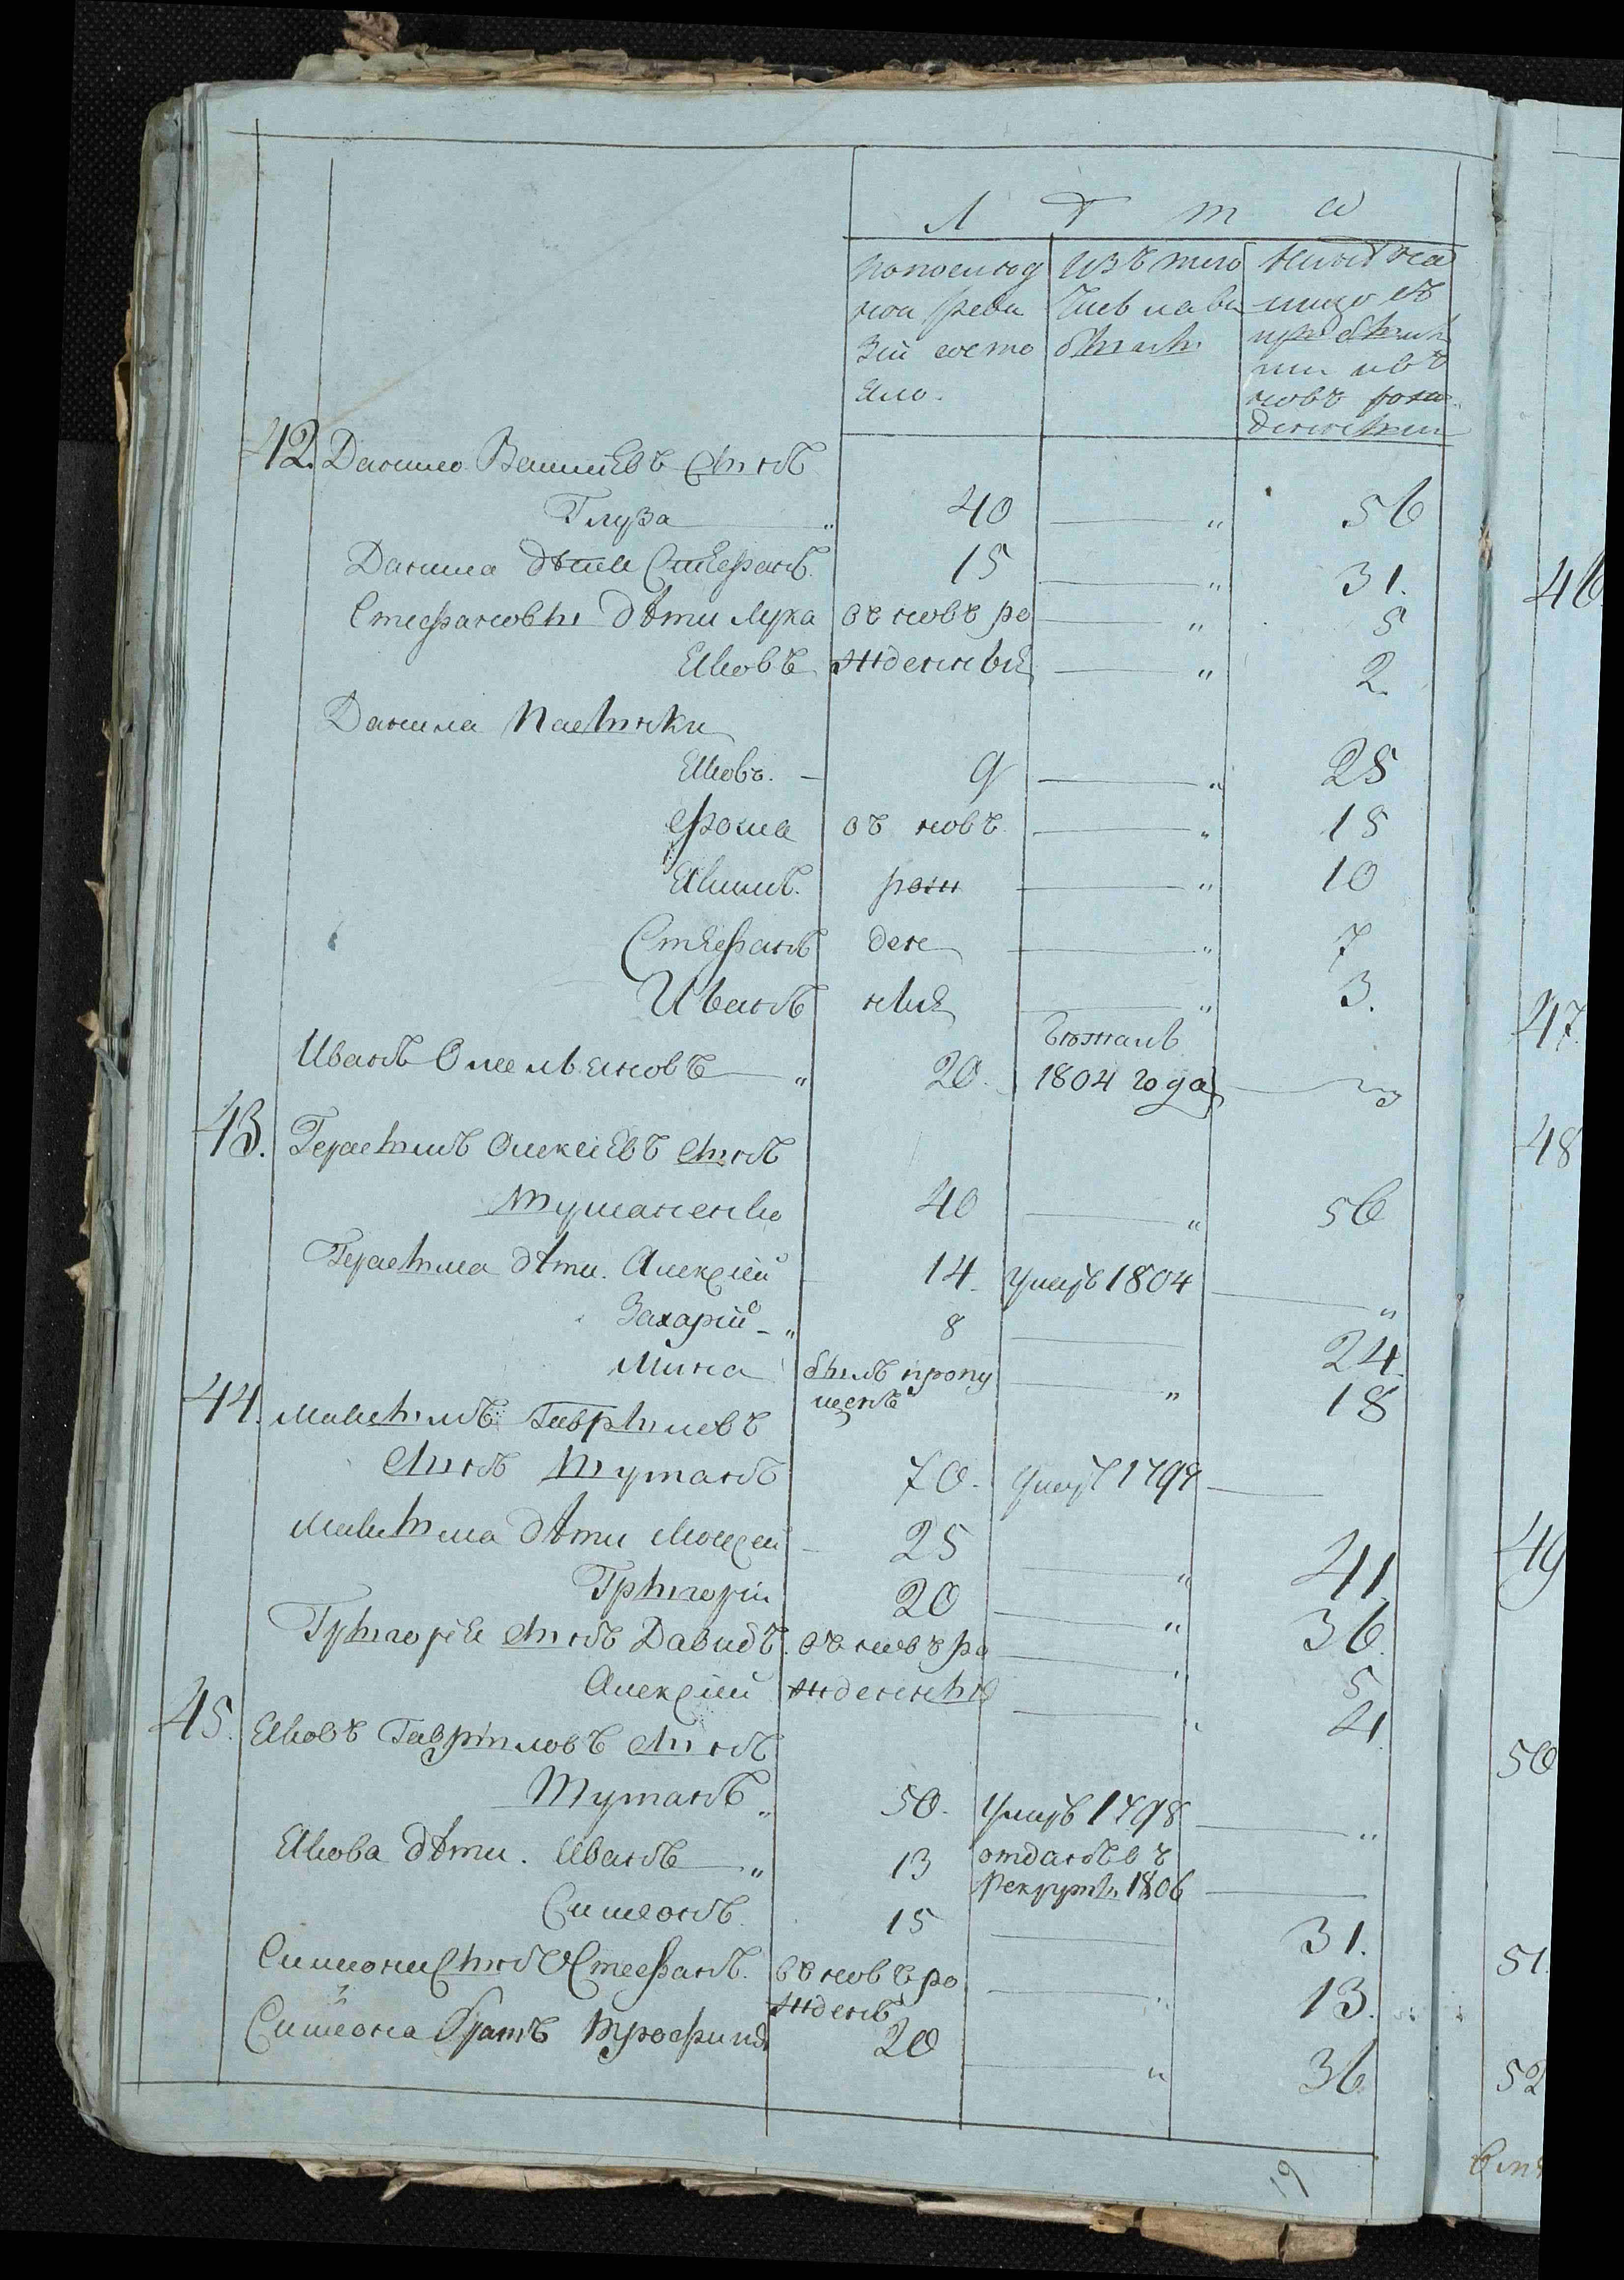 Лѣта
по послѣд
ней реви
зіи состо
яло.
изъ того
числа вы
было
нынѣ на
лицо съ
прибылы
ми и въ
новъ рож
денными
42. Данило Васильевъ сынъ
Глуза 40 — " 56
Данила дѣти Стефанъ. 15 — " 31.
Стефановы дѣти Лука въ новъ ро — " 5
Яковъ жденный — " 2.
Данила пасынки
Яковъ. — 9 — " 25
Фома въ новъ — " 15
Якимъ. рож — " 10
Стефанъ ден — " 7
Иванъ ныя — " 3.
Иванъ Омельяновъ — " 20. бѣжалъ
1804 года —
43. Герасимъ Олексіевъ сынъ
Тущаненко 40 — " 56
Герасима дѣти. Алексѣй 14. умеръ 1804 — "
Захарій — " 8 — 24.
Мина былъ пропу — " 18
щенъ
44. Максимъ Гавриловъ
сынъ Тутанъ 70. умеръ 1797 —
Максима дѣти Моисей — 25 — " 41
Григорій 20 — " 36.
Григорія сынъ Давидъ. въ новъ ро — " 5
Алексѣй жденный — " 4
45. Яковъ Гавриловъ сынъ
Тутанъ " 50. умеръ 1798 — "
Якова дѣти. Иванъ — " 13 отданъ въ
рекруты 1806 —
Симеонъ. 15 — 31.
Симеона сынъ Стефанъ. въ новъ ро — " 13.
жденъ
Симеона братъ Трофимъ 20 — " 36
19
46.
47.
48
49
50
51.
52